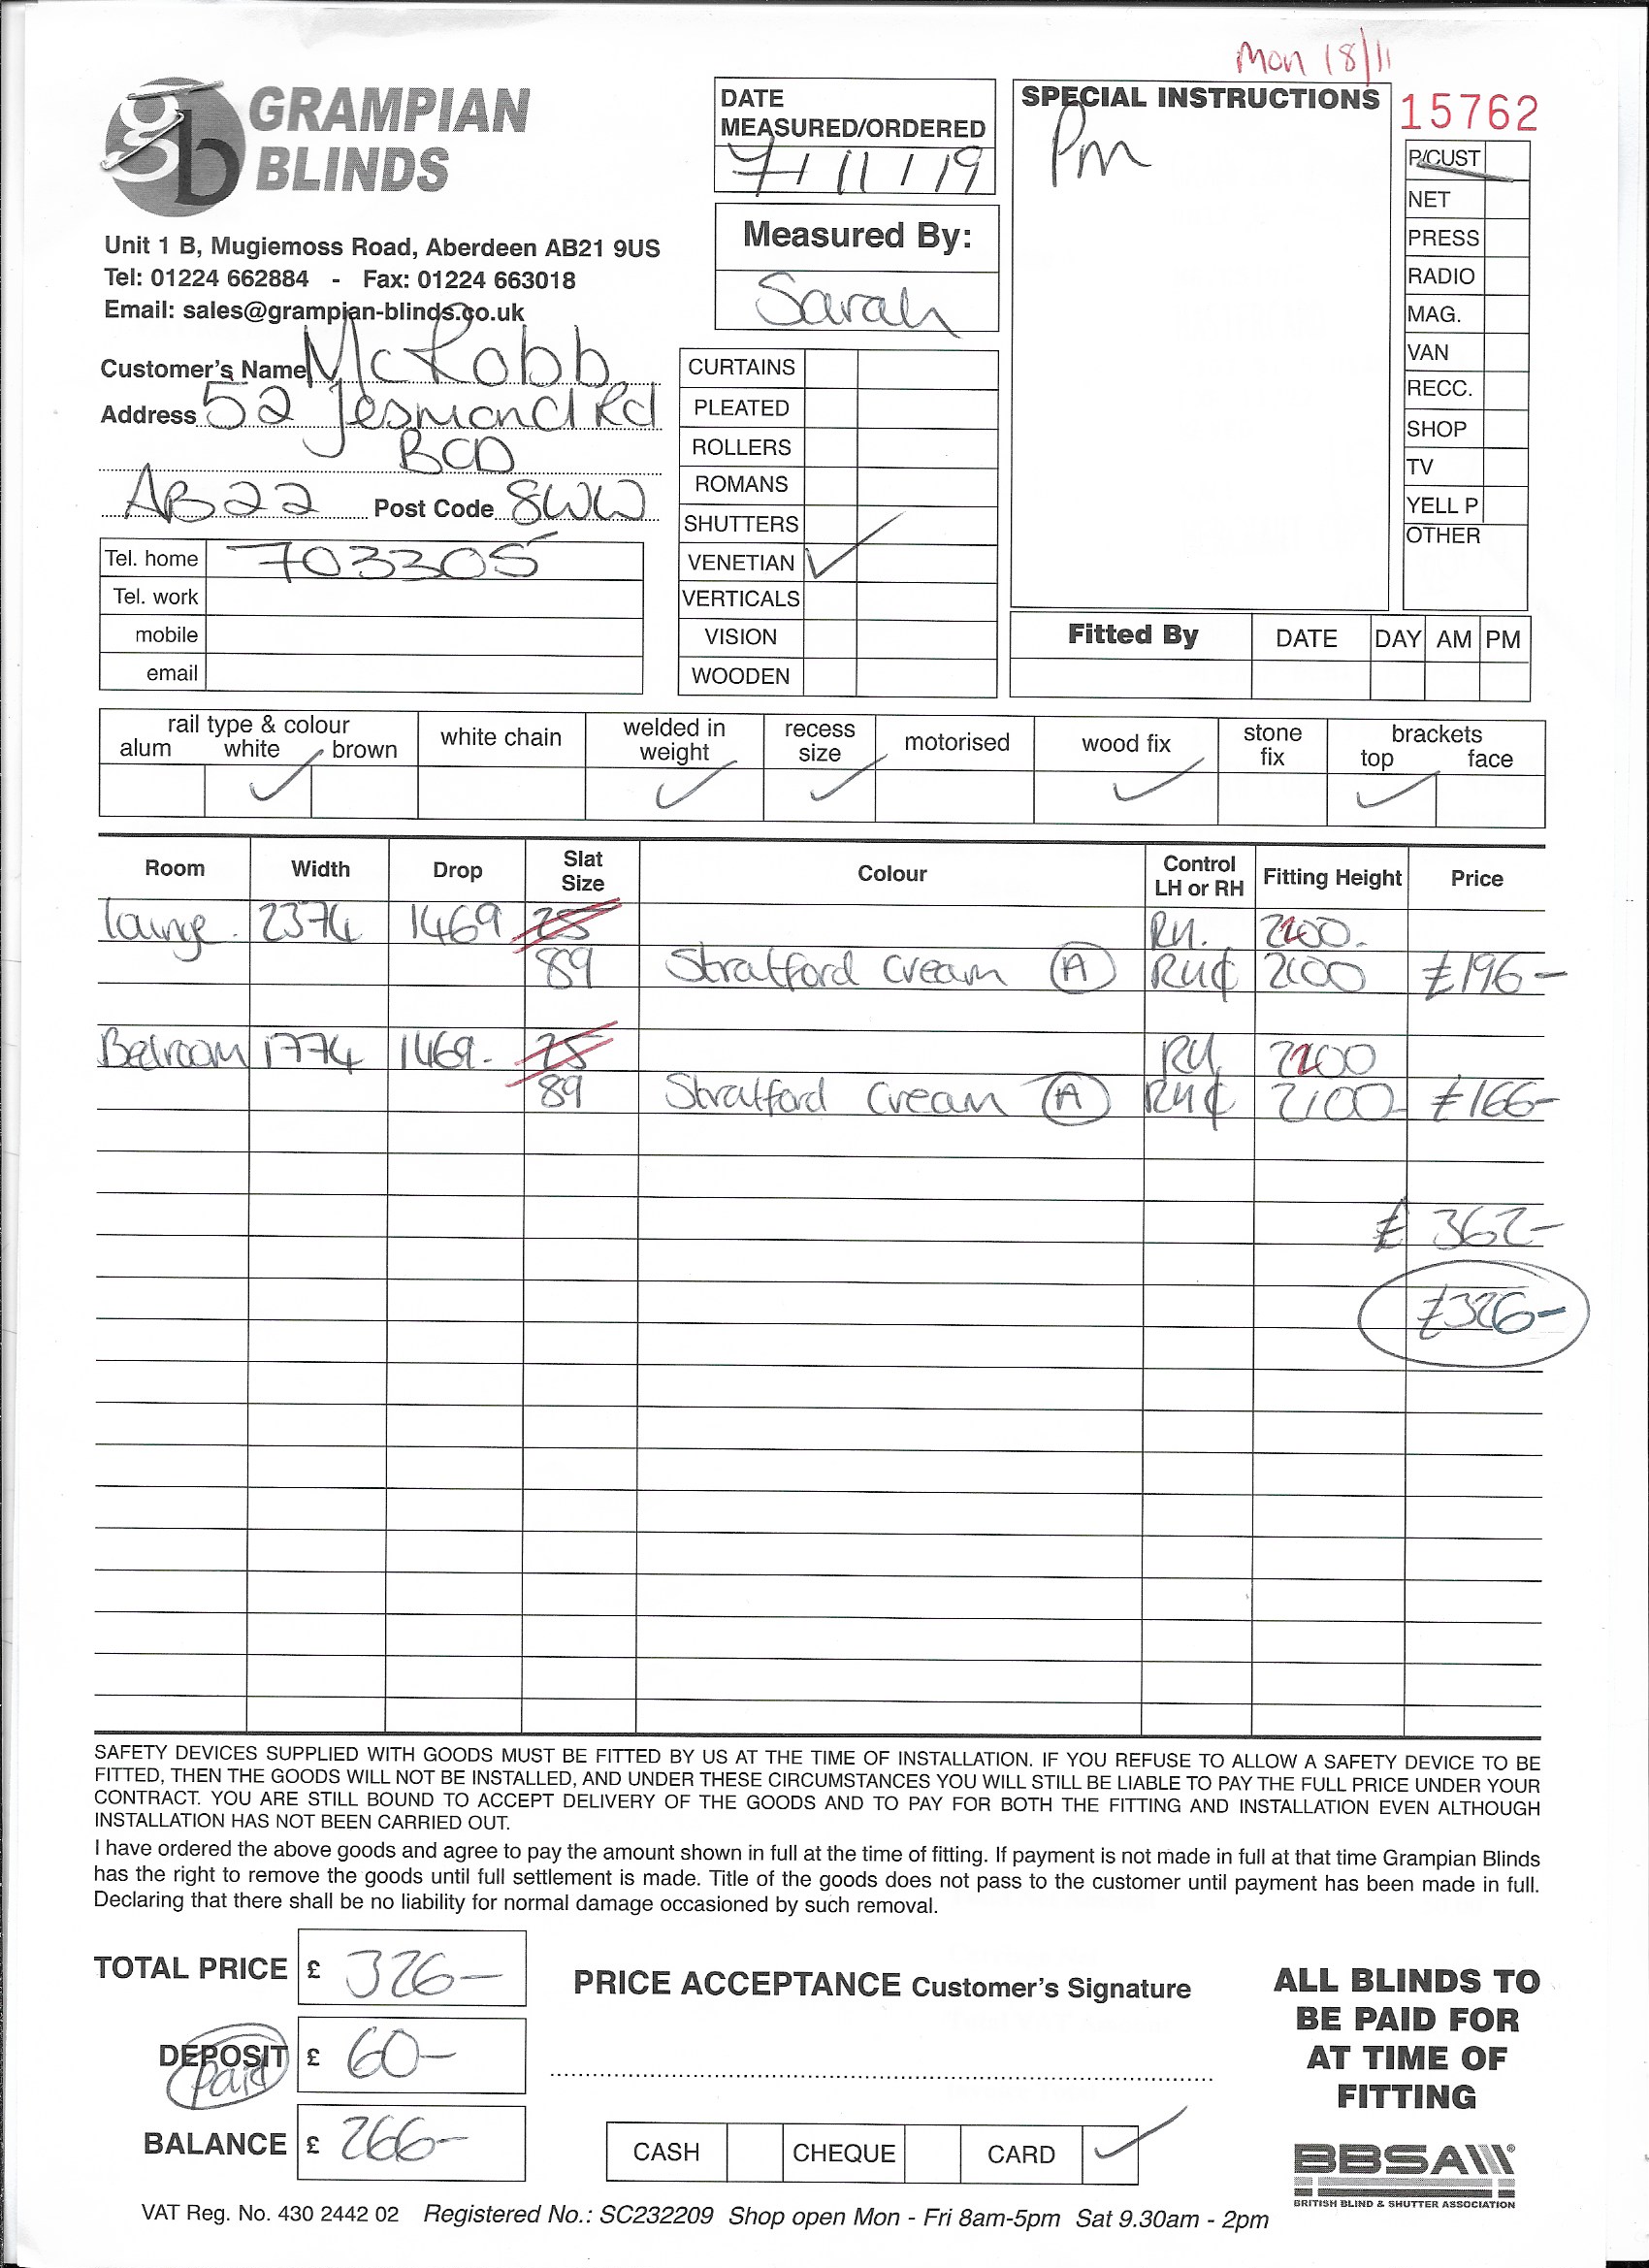 Mon 18/11
GRAMPIAN
BLINDS
Unit 1 B, Mugiemoss Road, Aberdeen AB21 9US
Tel: 01224 662884 - Fax: 01224 663018
Email: sales@grampian-blinds.co.uk
Customer's Name McRobb
Address 52 Jesmond Rd
BOD
AB22 Post Code 8WW
Tel. home 703305
Tel. work
mobile
email
DATE
MEASURED/ORDERED
7/11/19
Measured By:
Sarah
CURTAINS
PLEATED
ROLLERS
ROMANS
SHUTTERS
VENETIAN ✓
VERTICALS
VISION
WOODEN
SPECIAL INSTRUCTIONS
Pm
15762
P/CUST
NET
PRESS
RADIO
MAG.
VAN
RECC.
SHOP
TV
YELL P
OTHER
Fitted By DATE DAY AM PM
rail type & colour
alum white ✓ brown
white chain
welded in
weight ✓
recess
size ✓
motorised
wood fix ✓
stone
fix
brackets
top ✓ face
Room Width Drop Slat Size Colour Control LH or RH Fitting Height Price
Lounge 2374 1469 25 RH. 2100.
89 Stratford Cream A RH¢ 2100 £196-
Bedroom 1774 1469. 25 RH 2100
89 Stratford Cream A RH¢ 2100 £166-
£ 362-
£326-
SAFETY DEVICES SUPPLIED WITH GOODS MUST BE FITTED BY US AT THE TIME OF INSTALLATION. IF YOU REFUSE TO ALLOW A SAFETY DEVICE TO BE
FITTED, THEN THE GOODS WILL NOT BE INSTALLED, AND UNDER THESE CIRCUMSTANCES YOU WILL STILL BE LIABLE TO PAY THE FULL PRICE UNDER YOUR
CONTRACT. YOU ARE STILL BOUND TO ACCEPT DELIVERY OF THE GOODS AND TO PAY FOR BOTH THE FITTING AND INSTALLATION EVEN ALTHOUGH
INSTALLATION HAS NOT BEEN CARRIED OUT.
I have ordered the above goods and agree to pay the amount shown in full at the time of fitting. If payment is not made in full at that time Grampian Blinds
has the right to remove the goods until full settlement is made. Title of the goods does not pass to the customer until payment has been made in full.
Declaring that there shall be no liability for normal damage occasioned by such removal.
TOTAL PRICE £ 326-
DEPOSIT £ 60-
Paid
BALANCE £ 266-
PRICE ACCEPTANCE Customer's Signature
CASH CHEQUE CARD ✓
ALL BLINDS TO
BE PAID FOR
AT TIME OF
FITTING
BBSA
BRITISH BLIND & SHUTTER ASSOCIATION
VAT Reg. No. 430 2442 02 Registered No.: SC232209 Shop open Mon - Fri 8am-5pm Sat 9.30am - 2pm